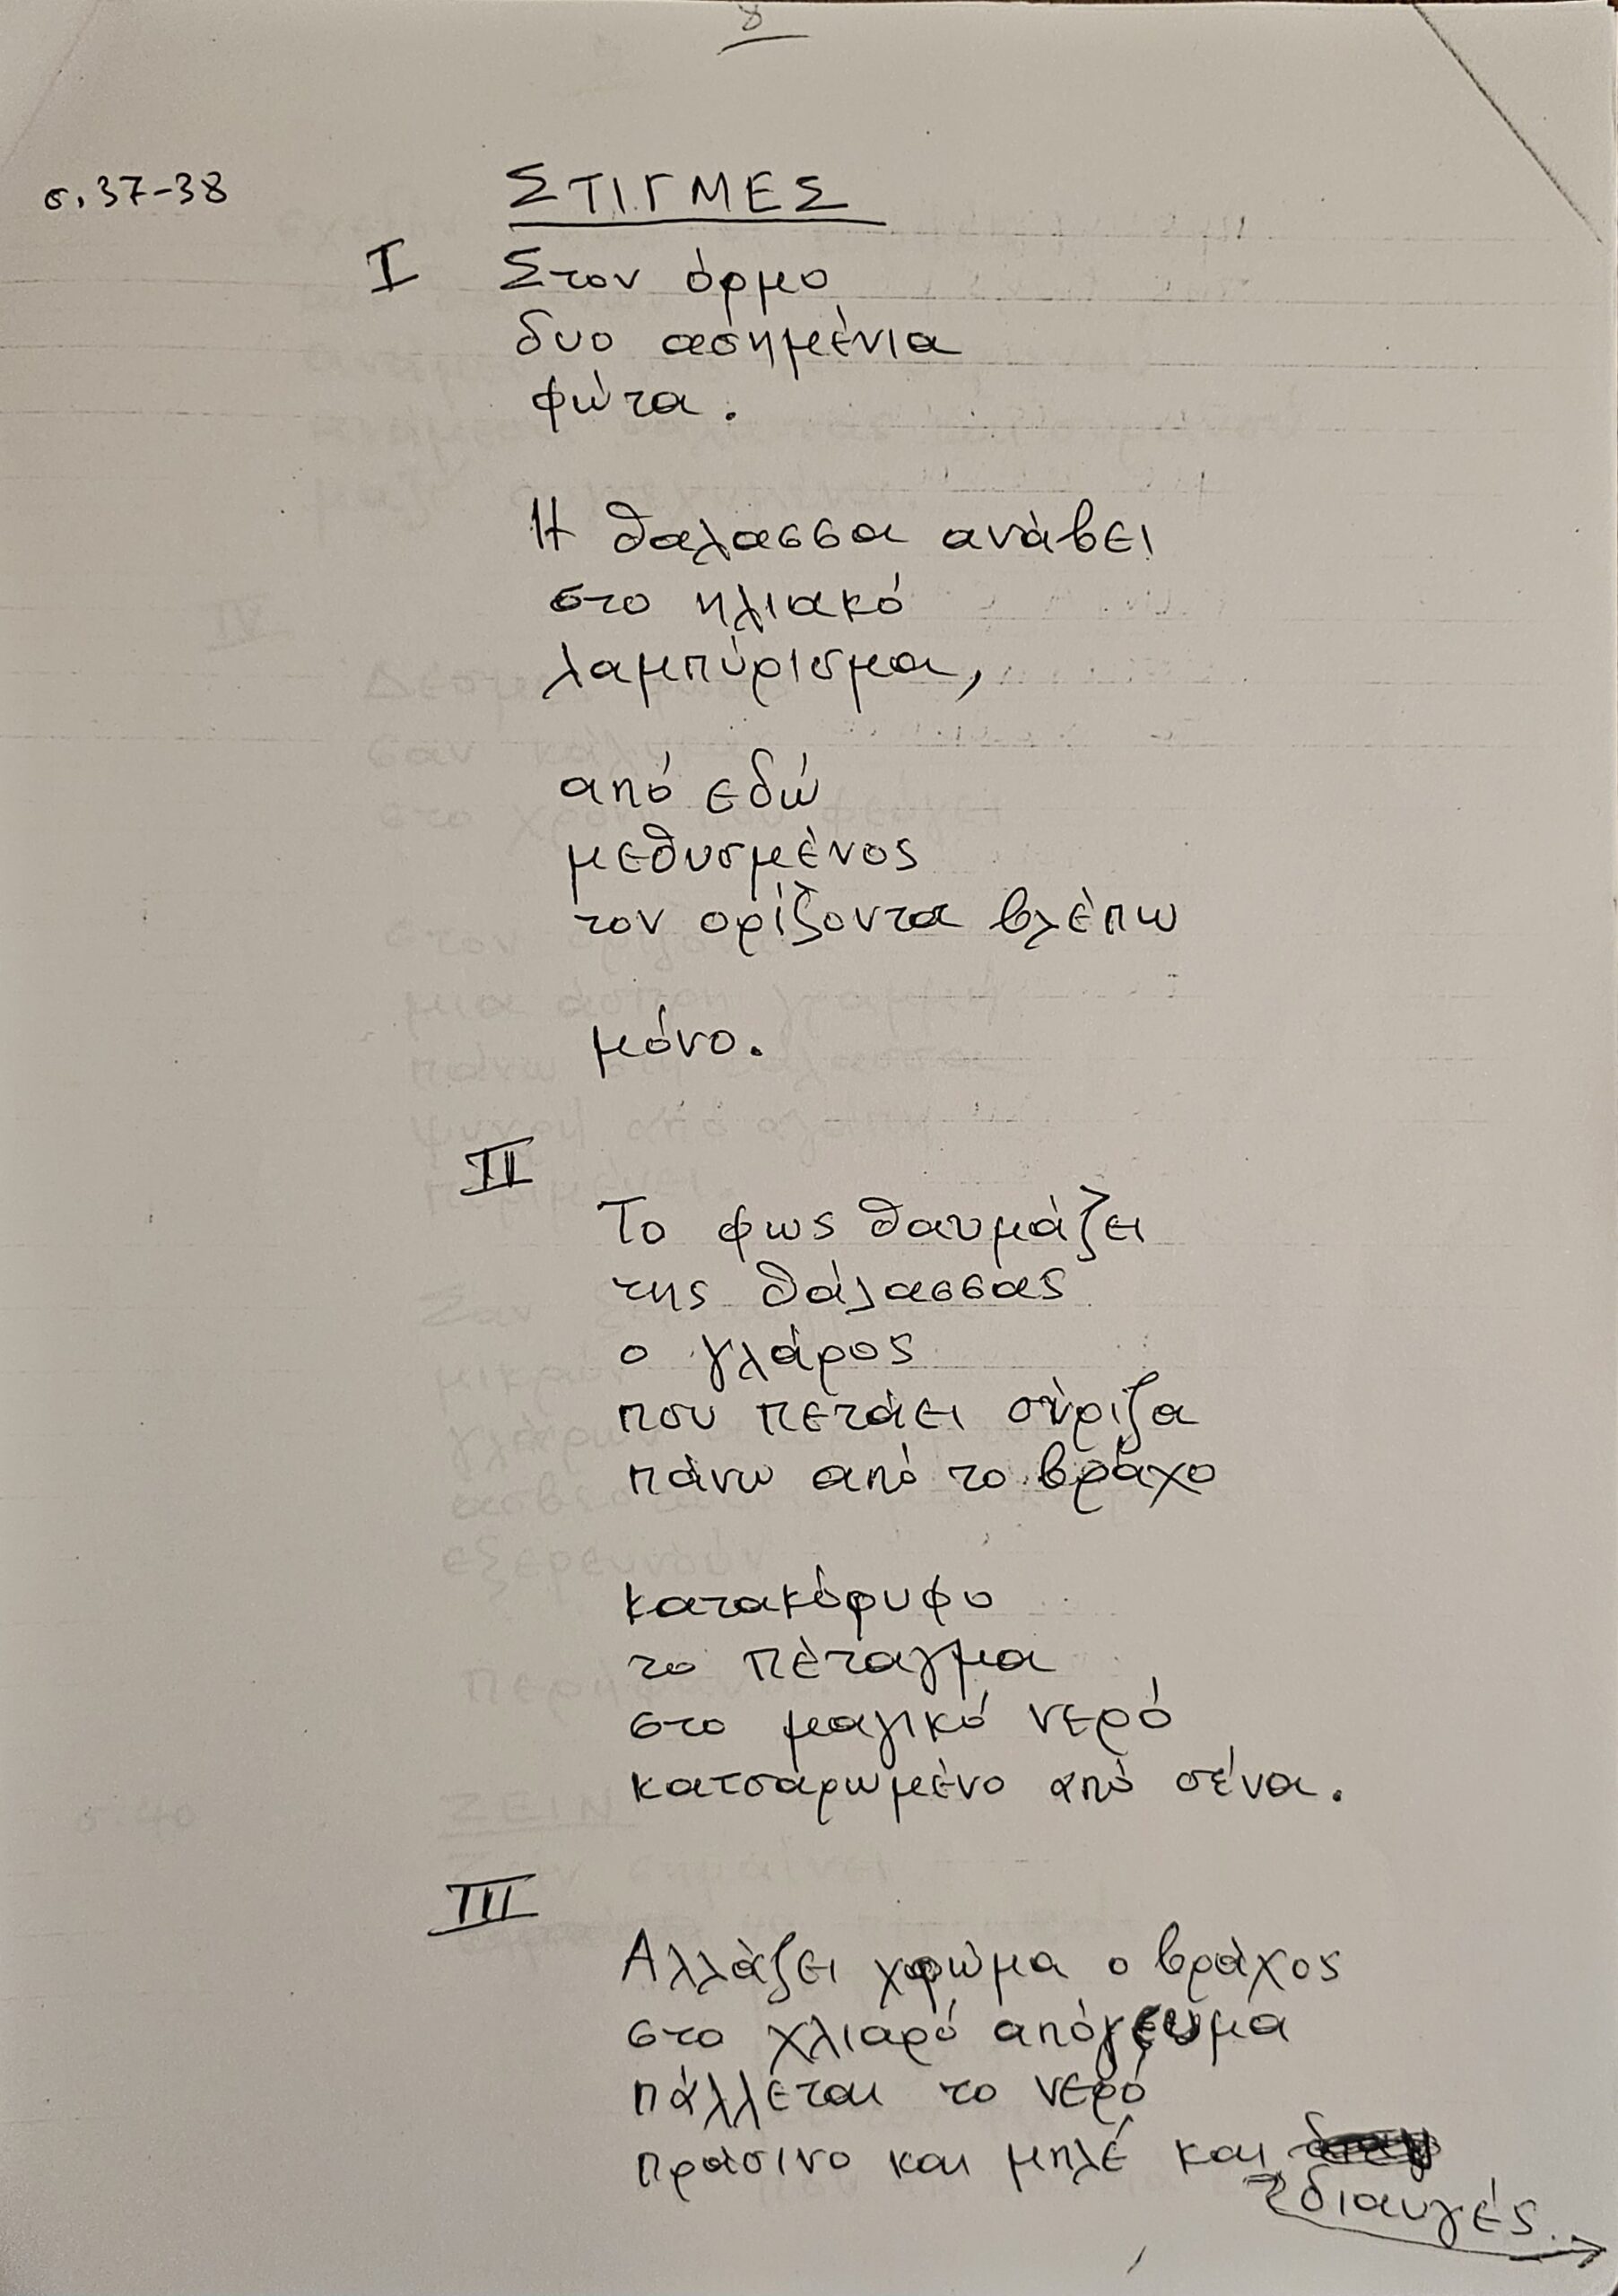 8
σ. 37-38
ΣΤΙΓΜΕΣ
I Στον όρμο
δυο ασημένια
φώτα.
Η θαλασσα ανάβει
στο ηλιακό
λαμπύρισμα,
από εδώ
μεθυσμένος
τον ορίζοντα βλέπω
μόνο.
II
Το φως θαυμάζει
της θάλασσας
ο γλάρος
που πετάει σύριζα
πάνω από το βράχο
κατακόρυφο
το πέταγμα
στο μαγικό νερό
κατσαρωμένο από σένα.
III
Αλλάζει χρώμα ο βράχος
στο χλιαρό απόγευμα
πάλλεται το νερό
πράσινο και μπλέ και
διαυγές.